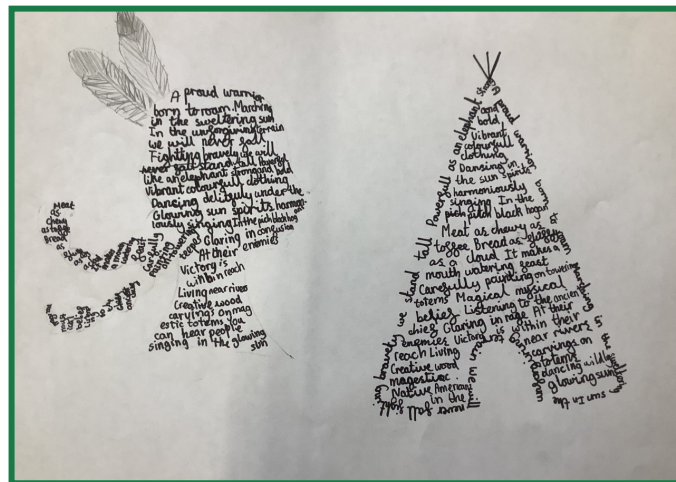 A proud warrior
born to roam. Marching
in the sweltering sun
In the unforgiving terrain
we will never fall.
Fighting bravely we will
never fall stand tall Powerful
like an elephant strong and bold
Vibrant colourfull clothing
Dancing delitguly under the
Glowing sun spirits harmon
iously singing In the pich black hogan
Glaring in confusion
At their enemies
Victory is
within reach
Living near rivers
Creative wood
carvings on mag
estic totems you
can hear people
singing in the glowing
sun
Meat
as
chewy
as toffee
Bread
as
a
mouth
watering
feast
Carefully
painting
towering
A proud warrior born
strong
and
bold
Vibrant
colourfull
clothing
Dancing in
the sun spirits
harmoniously
singing In the
pich pitch black hogan
Meat as chewy as
toffee Bread as
as a cloud It makes a
mouth watering feast
Carefully painting on towering
totems Magical mysical
beliefs Listening to the ancient
chief Glaring in rage At their
enemies Victory is within their
reach Living near rivers
Creative wood carvings on
magestivc totems
Native American dancing wildly
in the glowing sun
never fall
we stand tall Powerfull as an elephant
bravely
we will
sun In the